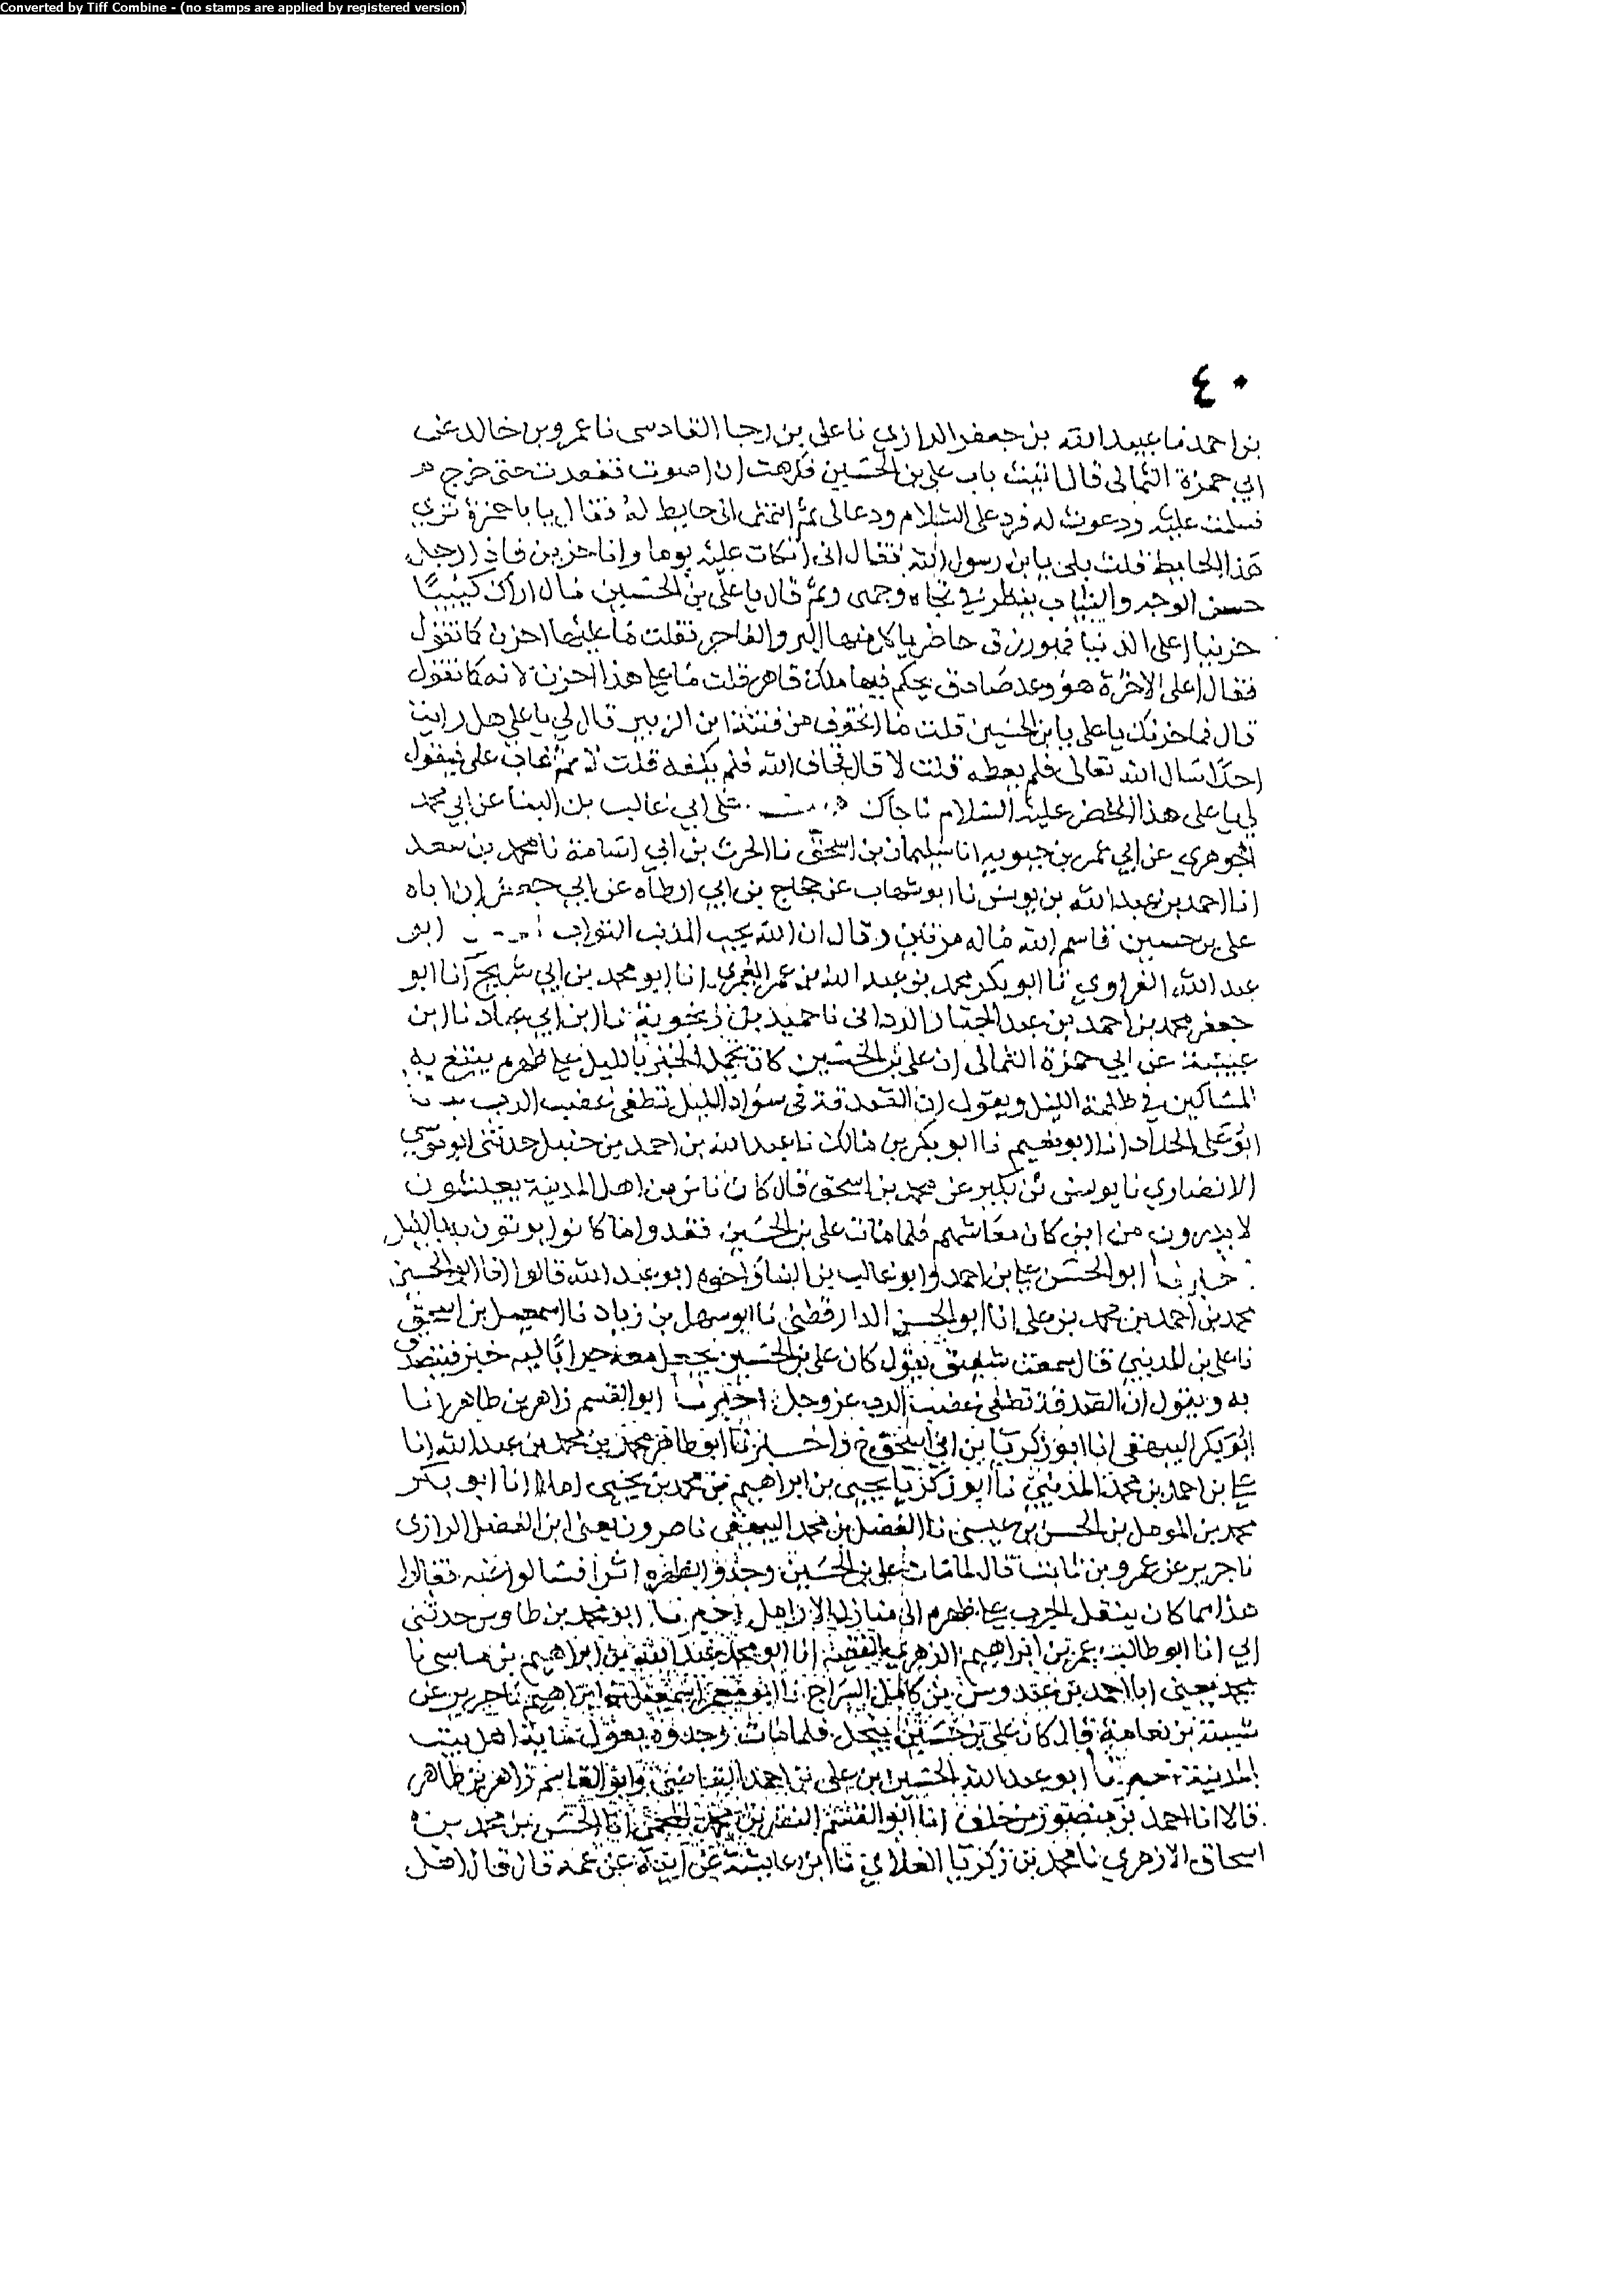 Converted by Tiff Combine - (no stamps are applied by registered version)
٤٠
بن احمد نا عبيد الله بن جعفر الرازي نا علي بن رجا القادسى نا عمرو بن خالد عن
ابي حمزة الثمالى قال اتيت باب على بن الحسين فكرهت ان اصوت فقعدت حتى خرج
فسلمت عليه ودعوت له فرد على السلام ودعا لى ثم انتهى الى حايط له فقال يا باحمزة ترى
هذا الحايط قلت بلى يا بن رسول الله فقال انى اتكات عليه يوما وانا حزين فاذا رجل
حسن الوجه والثياب ينظر في تجاه وجهى ثم قال يا على بن الحسين مال اراك كئيبا
حزينا اعلى الدنيا فهو رزق حاضر ياكل منها البر والفاجر فقلت ما عليها احزن كما تقول
فقال اعلى الاخرة هو وعد صادق يحكم فيها ملك قاهر قلت ما على هذا احزن لانه كما تقول
قال فما حزنك يا على يا بن الحسين قلت ما اتخوف من فتنة ابن الزبير قال لي يا على هل رايت
احدا سال الله تعالى فلم يعطه قلت لا قال فخاف الله فلم يكفه قلت لا ثم غاب على فيقول
لي يا على هذا الخضر عليه السلام ناجاك على ابي غالب بن البنا عن ابي محمد
الجوهري عن ابي عمر بن حيويه انا سليمان بن اسحق نا الحرث بن ابي اسامة نا محمد بن سعد
انا احمد بن عبد الله بن يونس نا ابو شهاب عن حجاج بن ابي ارطاه عن ابي جعفر ان اباه
على بن حسين قاسم الله ماله مرتين وقال ان الله يحب المذنب التواب ابو
عبد الله الفراوي نا ابو بكر محمد بن عبد الله بن عمر العمري انا ابو محمد بن ابي شريح انا ابو
جعفر محمد بن احمد بن عبد الجبار الرذانى نا حميد بن زنجوية نا ابن ابي عباد نا ابن
عيينة عن ابي حمزة الثمالى ان على بن الحسين كان يحمل الخبز بالليل على ظهره يتبع به
المساكين في ظلمة الليل ويقول ان الصدقة فى سواد الليل تطفى غضب الرب
ابو على الحداد انا ابو نعيم نا ابو بكر بن مالك نا عبد الله بن احمد بن حنبل حدثنى ابو موسي
الانصاري نا يونس بن بكير عن محمد بن اسحق قال كان ناس من اهل المدينة يعيشون
لا يدرون من اين كان معاشهم فلما مات على بن الحسين فقدوا ما كانوا يوتون به بالليل
اخبرنا ابو الحسن على بن احمد وابو غالب بن البنا واخوه ابو عبد الله قالوا انا ابو الحسين
محمد بن احمد بن محمد بن على انا ابو الحسن الدارقطنى نا ابو سهل بن زياد نا اسمعيل بن اسحق
نا على بن المديني قال سمعت سفيان يقول كان على بن الحسين يحمل معه جرابا فيه خبز فيتصدق
به ويقول ان الصدقة تطفى غضب الرب عز وجل اخبرنا ابو القسم زاهر بن طاهر انا
ابو بكر البيهقى انا ابو زكريا بن ابي اسحق ح واخبرنا ابو طاهر محمد بن محمد بن عبد الله انا
على بن احمد بن محمد المديني نا ابو زكريا يحيى بن ابراهيم بن محمد بن يحيى املا انا ابو بكر
محمد بن المومل بن الحسن بن عيسى نا الفضل بن محمد البيهقى نا هرون يعنى ابن الفضل الرازى
نا جرير عن عمرو بن ثابت قال لما مات على بن الحسين وجدوا بظهره اثرا فسالوا عنه فقالوا
هذا مما كان ينقل الجرب على ظهره الى منازل الارامل اخبرنا ابو محمد بن طاوس حدثنى
ابي انا ابو طالب عمر بن ابراهيم الزهري الفقيه انا ابو محمد عبد الله بن ابراهيم بن ماسى نا
محمد يعنى ابا احمد بن عبدوس بن كامل السراج نا ابو معمر اسمعيل بن ابراهيم نا جرير عن
شيبة بن نعامة قال كان على بن حسين يبخل فلما مات وجدوه يعول ماية اهل بيت
بالمدينة اخبرنا ابو عبد الله الحسين بن على بن احمد القاضى وابو القاسم زاهر بن طاهر
قالا انا احمد بن منصور بن خلف انا ابو القسم النضر بن محمد بن انا الحسن بن محمد بن
اسحاق الازهري نا محمد بن زكريا الغلابي نا ابن عايشة عن ابيه عن عمه قال قال اهل